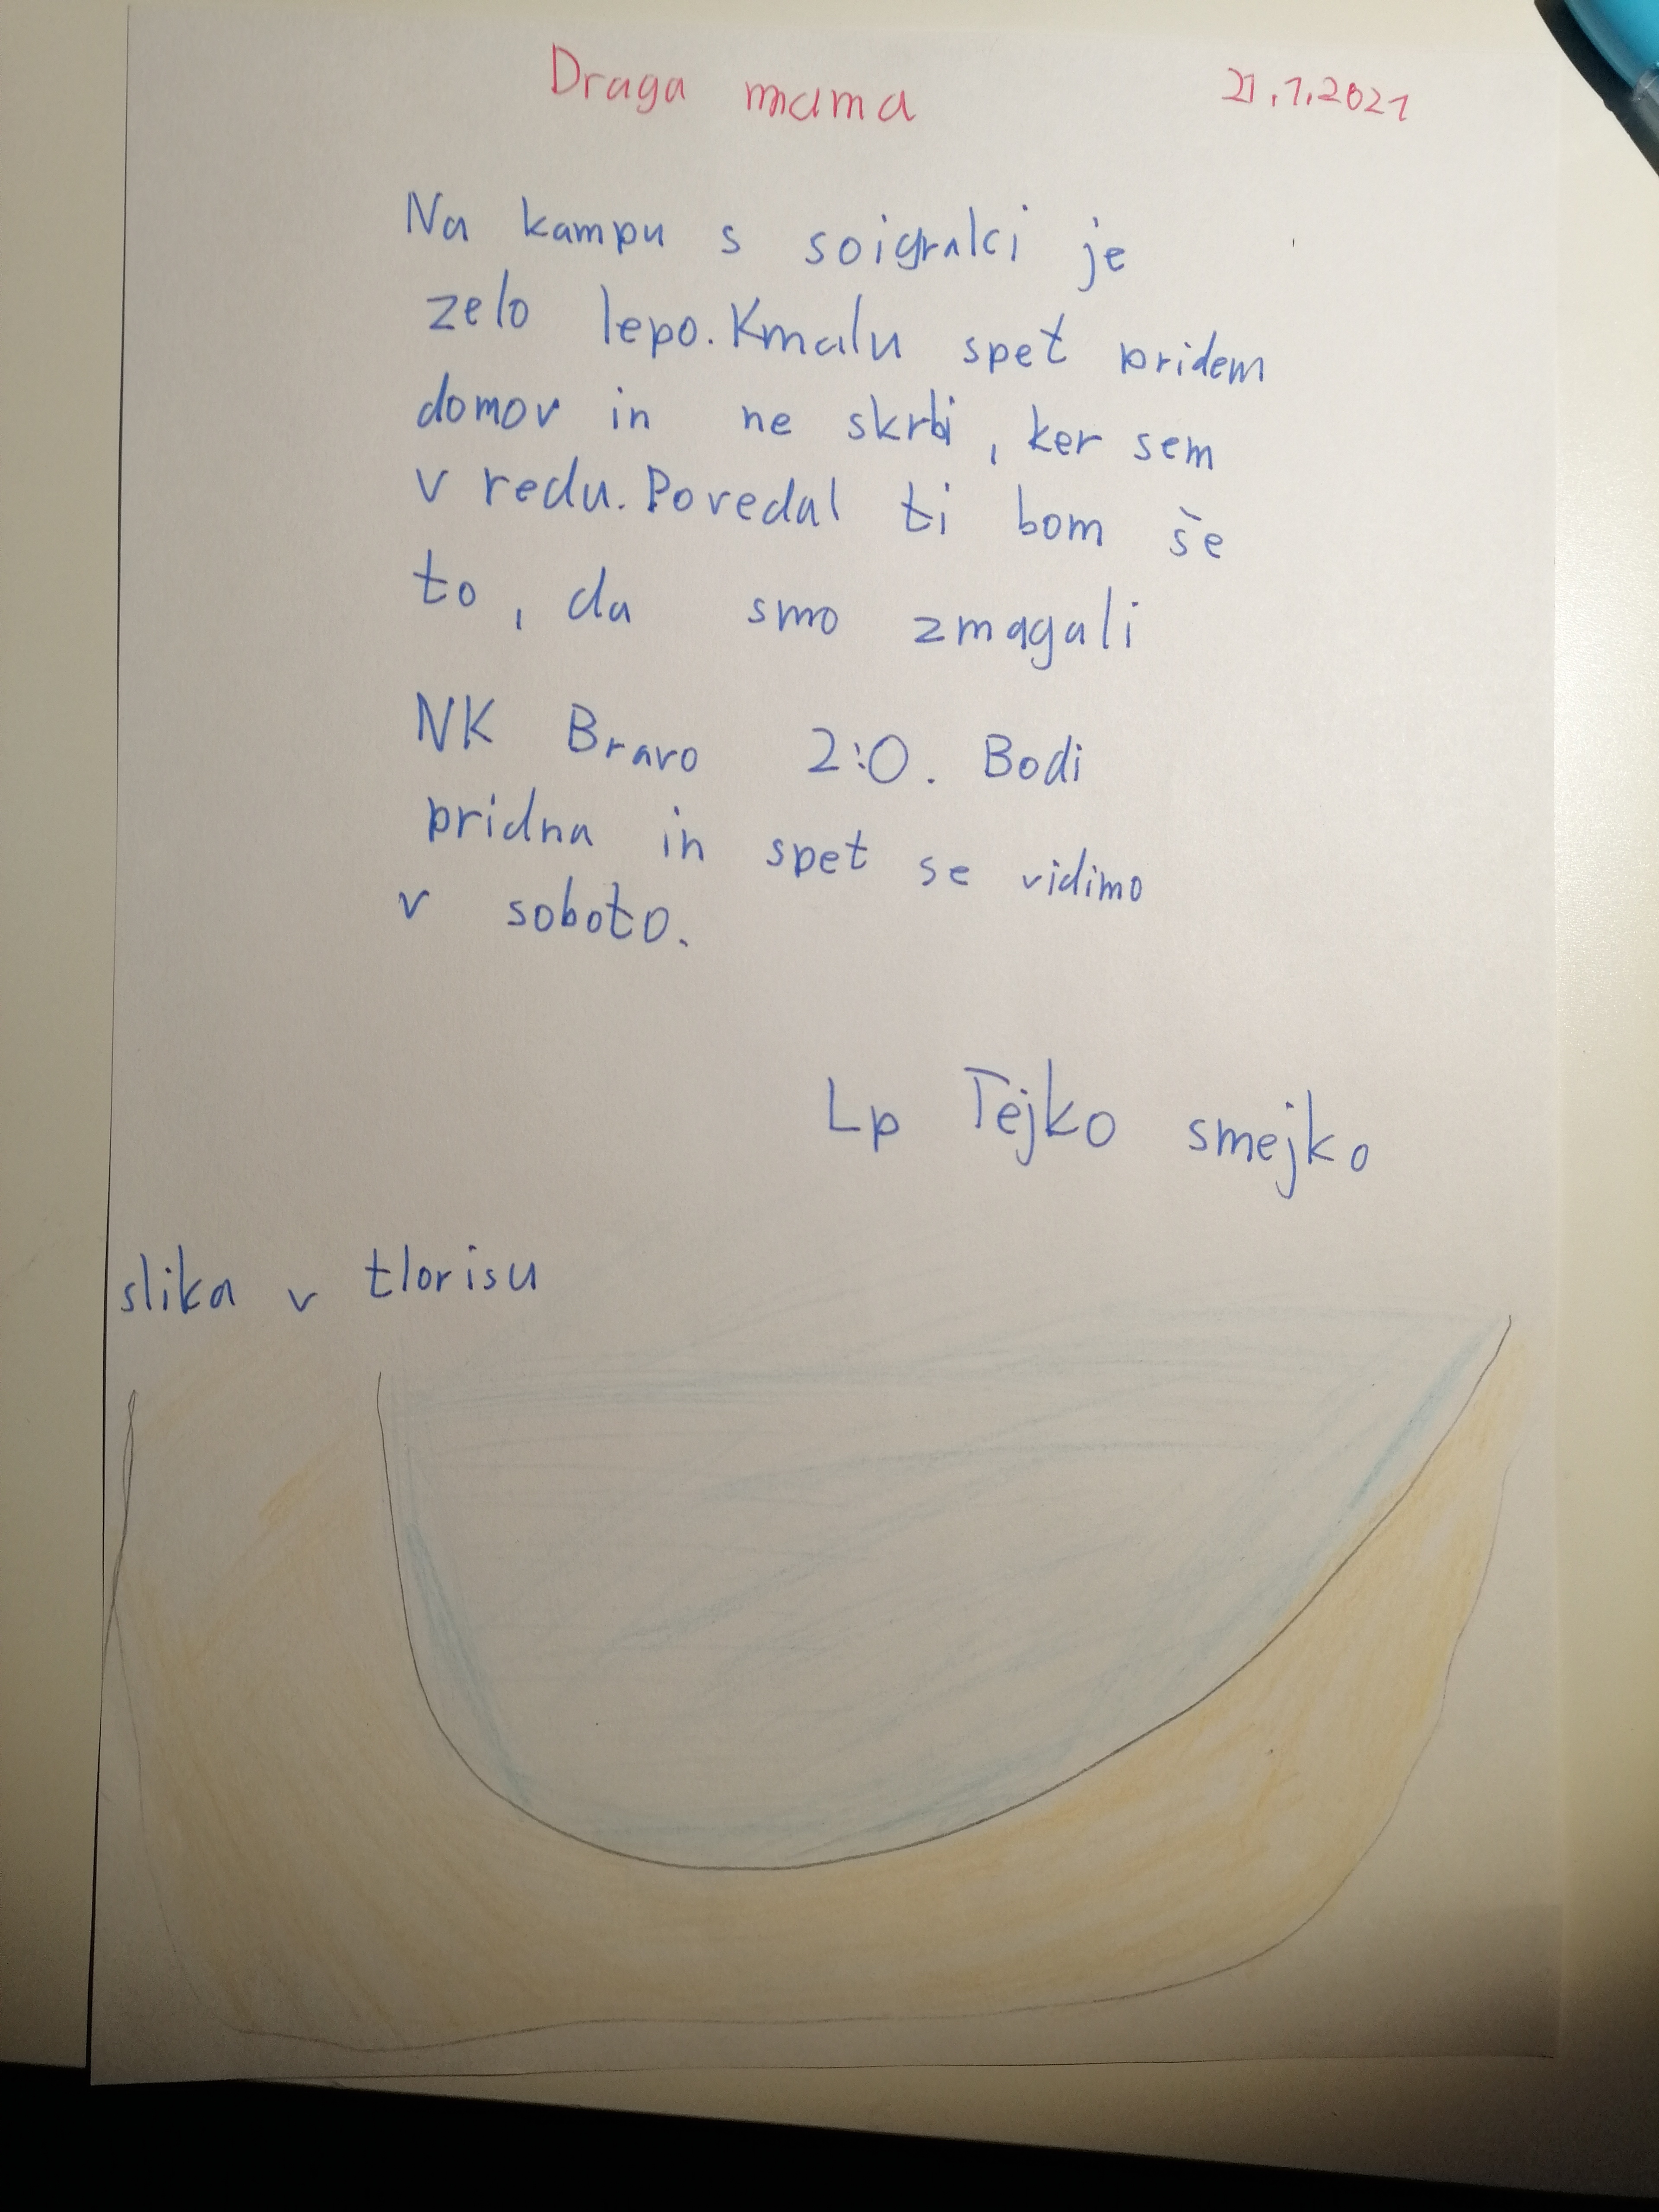 Draga mama 21.1.2021
Na kampu s soigralci je
zelo lepo. Kmalu spet pridem
domov in ne skrbi, ker sem
v redu. Povedal ti bom še
to, da smo zmagali
NK Bravo 2:0. Bodi
pridna in spet se vidimo
v soboto.
Lp Tejko smejko
slika v tlorisu